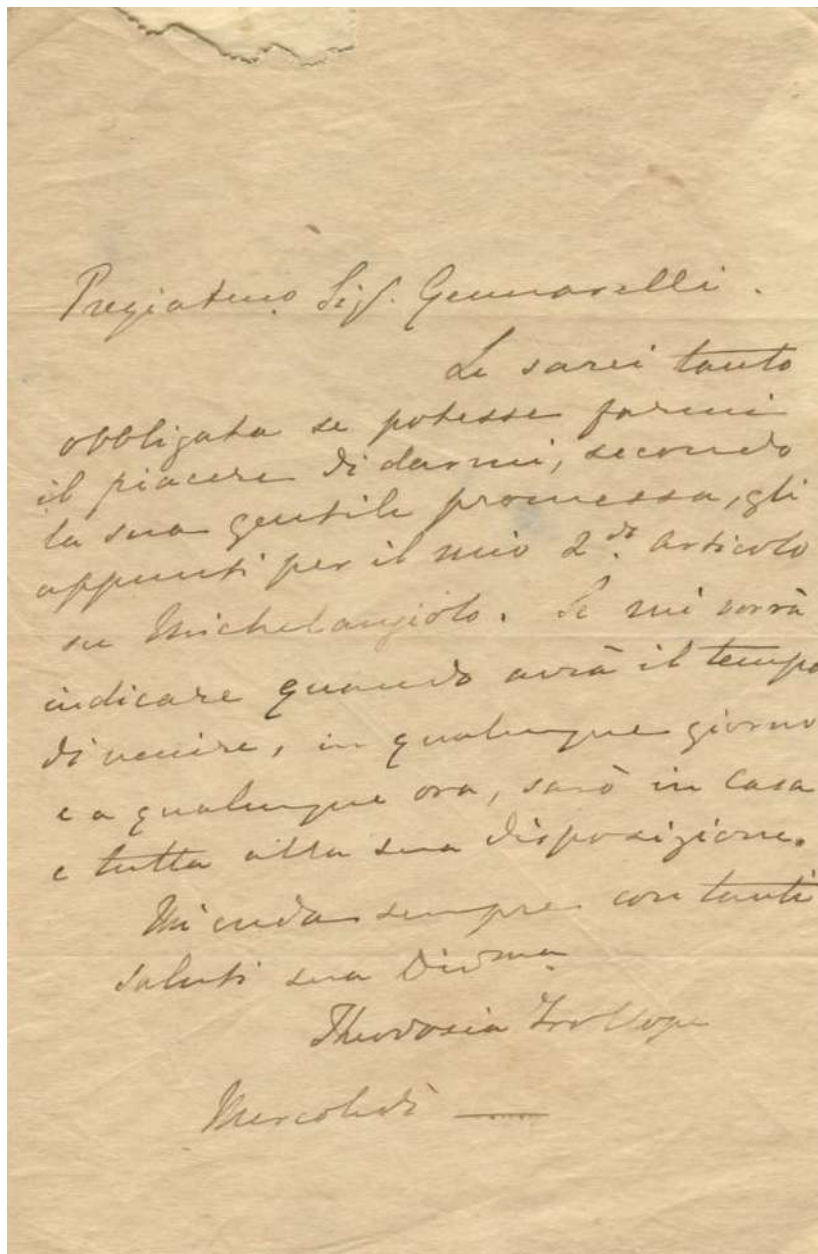 Pregiatmo. Sigr. Gennarelli.
Le sarei tanto
obbligata se potesse farmi
il piacere di darmi, secondo
la sua gentile promessa, gli
appunti per il mio 2do. Articolo
su Michelangiolo. Se mi vorrà
indicare quando avrà il tempo
di venire, in qualunque giorno
e a qualunque ora, sarò in Casa
e tutta alla sua disposizione.
Mi creda sempre con tanti
saluti sua Divma
Theodosia Trollope
Mercoledì —